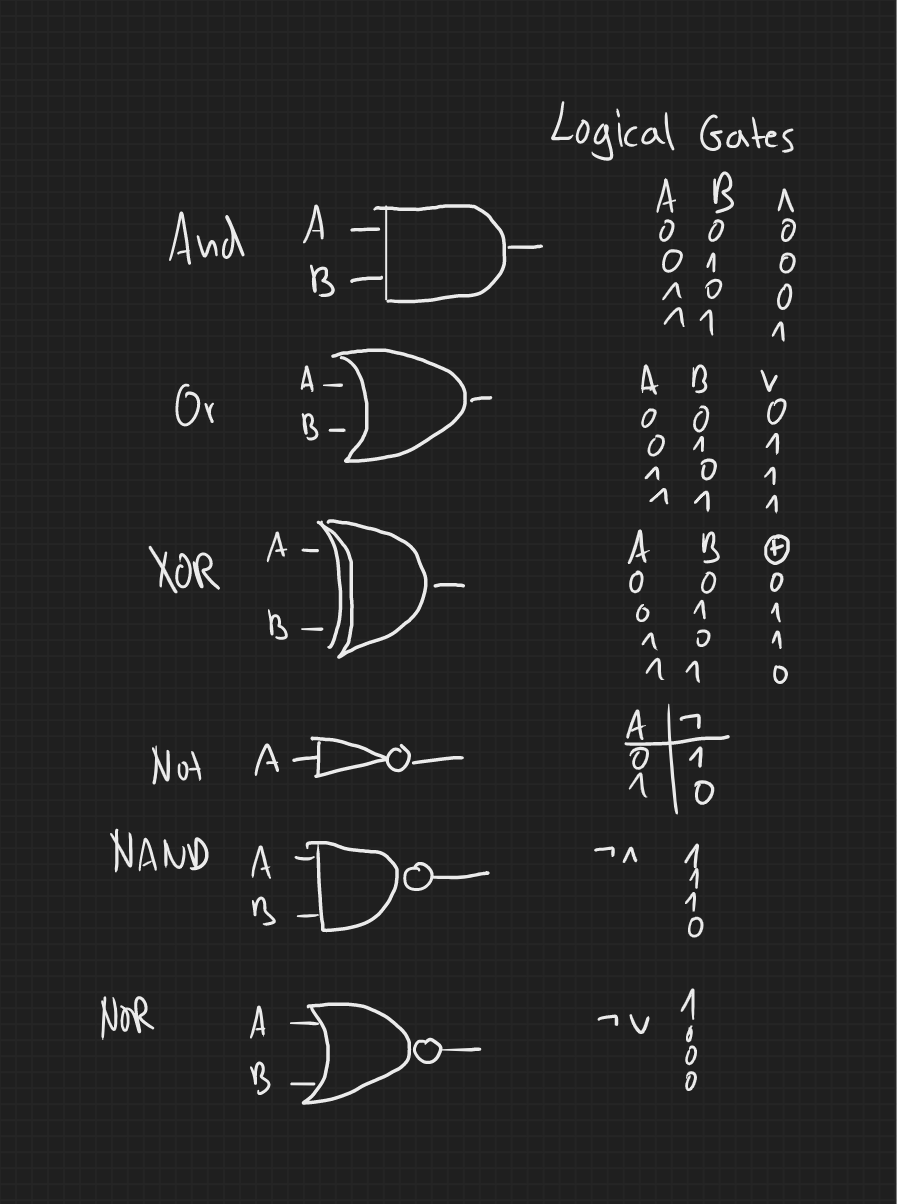 Logical Gates
And
A
B
A B ∧
0 0 0
0 1 0
1 0 0
1 1 1
Or
A
B
A B ∨
0 0 0
0 1 1
1 0 1
1 1 1
XOR
A
B
A B ⊕
0 0 0
0 1 1
1 0 1
1 1 0
Not
A
A ¬
0 1
1 0
NAND
A
B
¬∧ 1
1
1
0
NOR
A
B
¬∨ 1
0
0
0